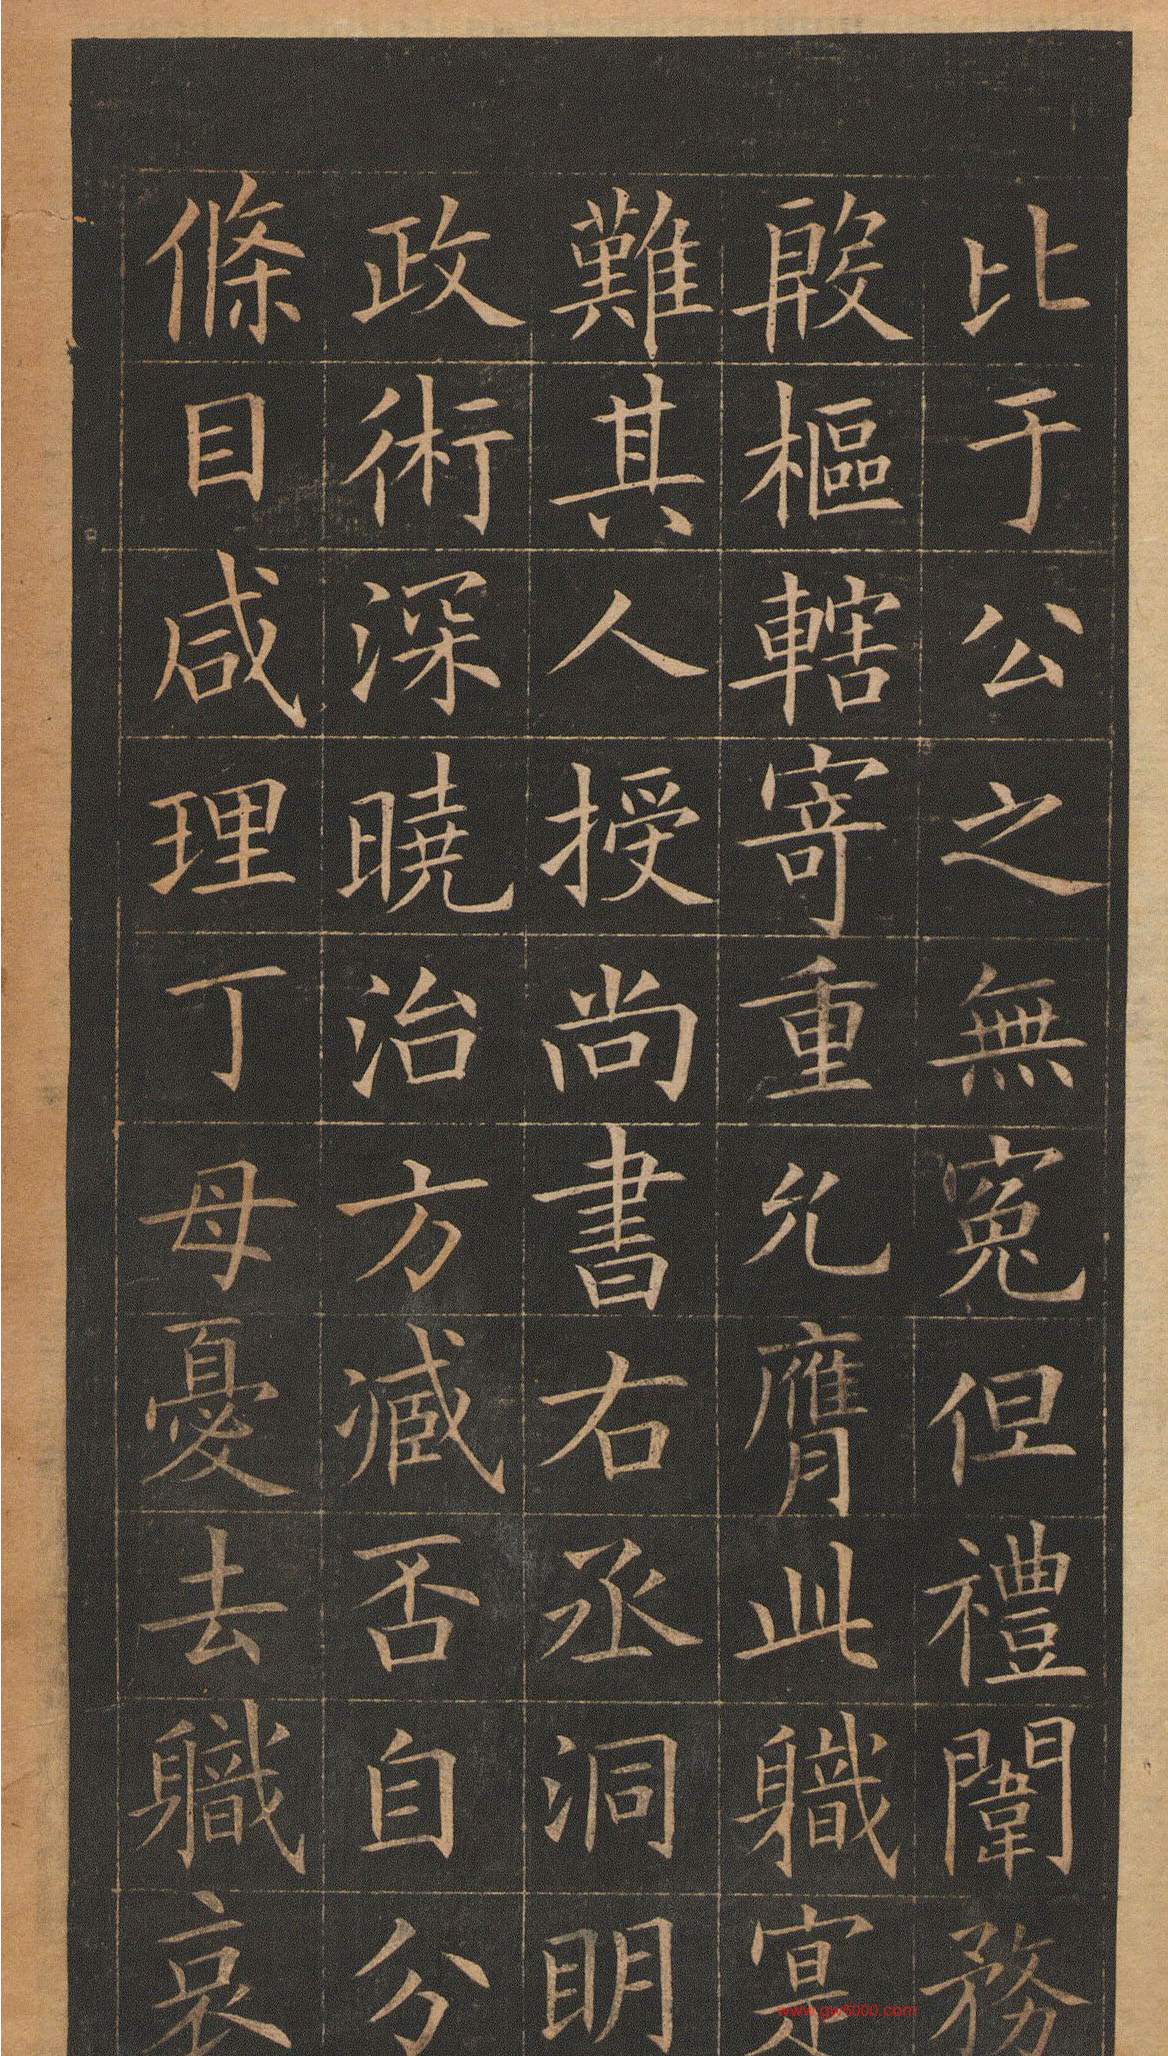 比于公之無寃但禮闈務
殷樞轄寄重允膺此職寔
難其人授尚書右丞洞明
政術深曉治方臧否自分
條目咸理丁母憂去職哀
www.gw5000.com